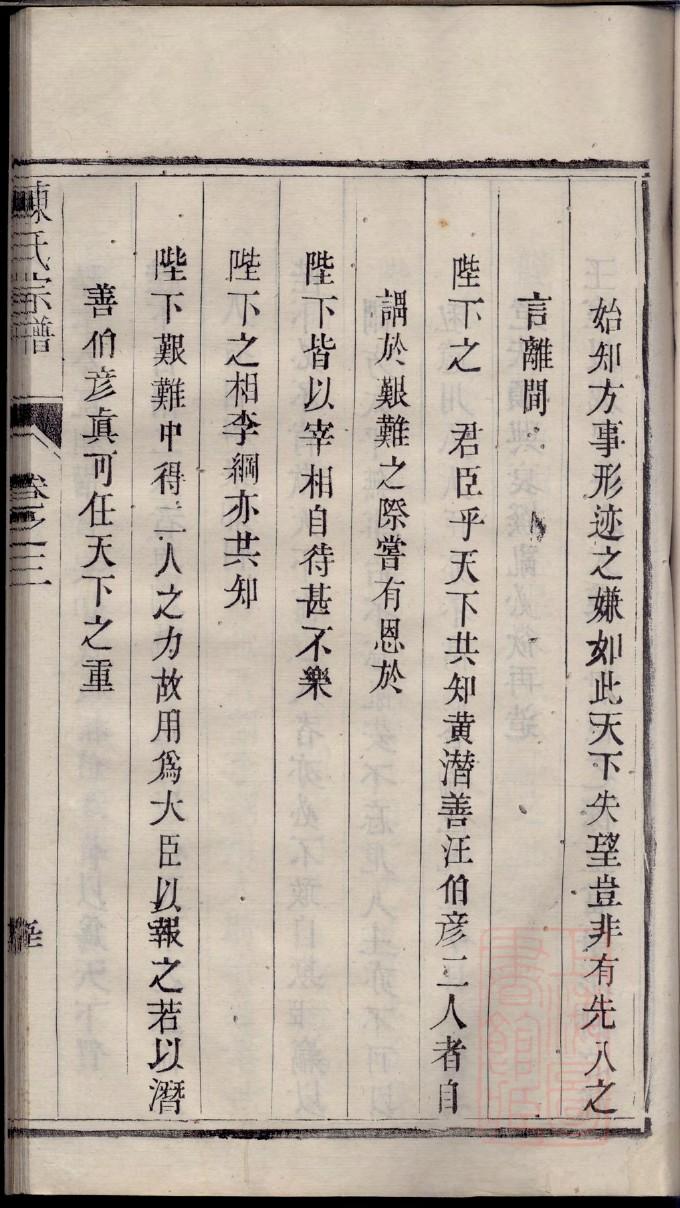 始知方事形迹之嫌如此天下失望豈非有先入之
言離間
陛下之 君臣乎天下共知黄潜善汪伯彦二人者自
謂於艱難之際嘗有恩於
陛下皆以宰相自待甚不樂
陛下之相李綱亦共知
陛下艱難中得二人之力故用爲大臣以報之若以潛
善伯彦真可任天下之重
陳氏宗譜
卷之三